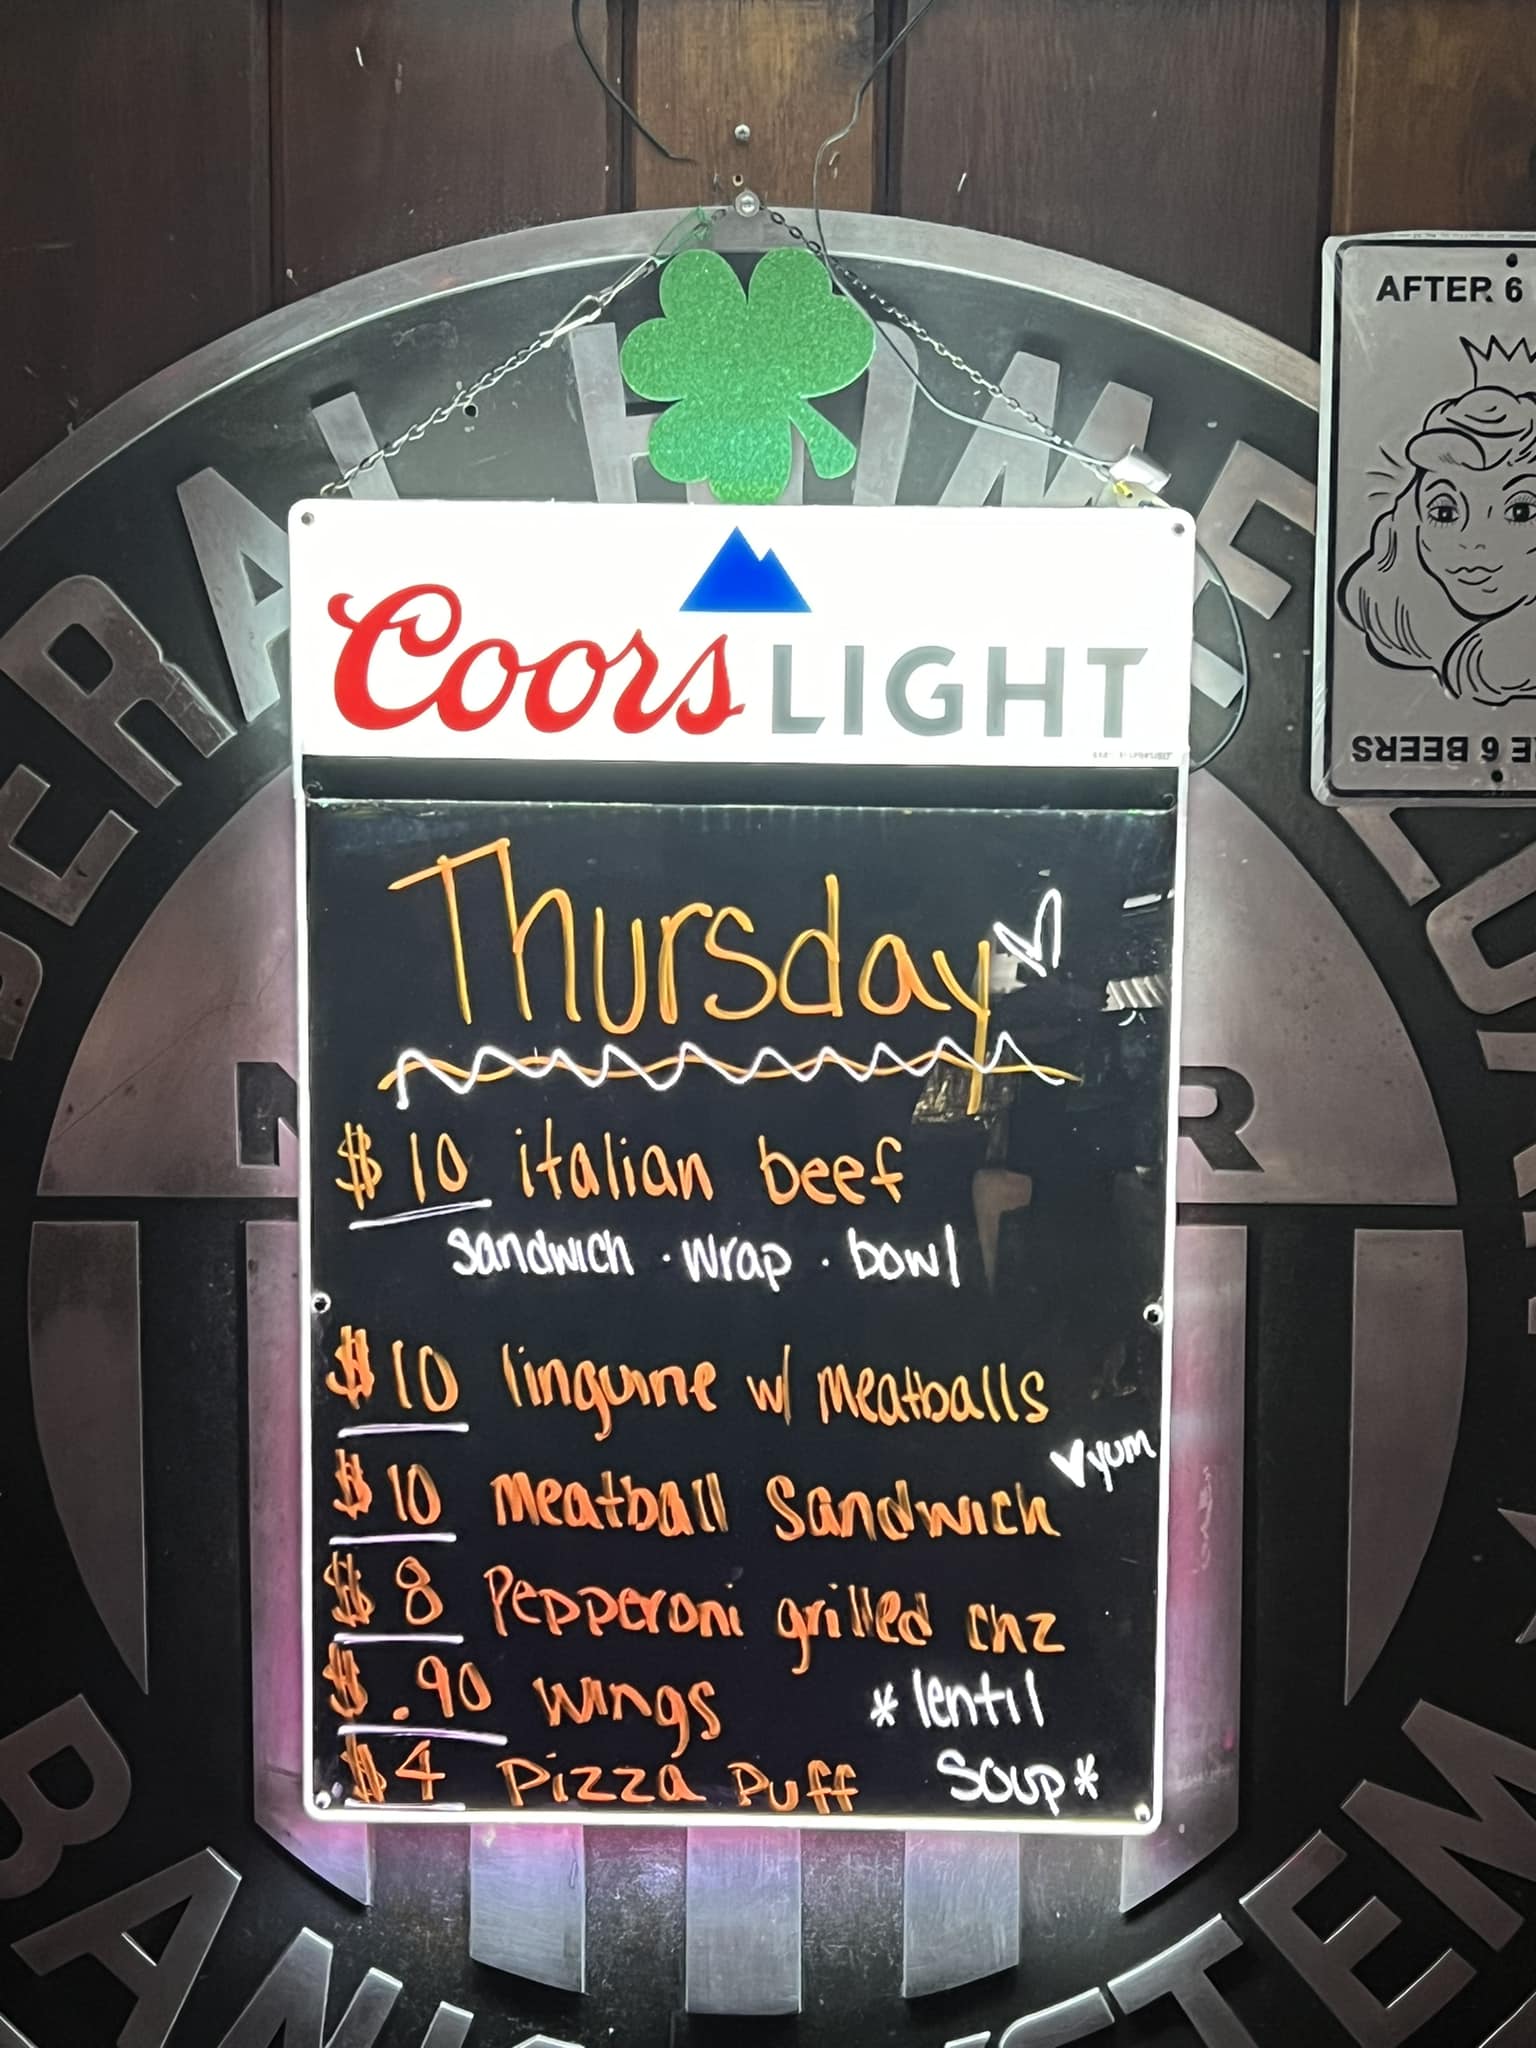 AFTER 6
E 6 BEERS
Coors LIGHT
Thursday
$10 italian beef
sandwich · wrap · bowl
$10 linguine w/ meatballs
♥yum
$10 meatball sandwich
$8 Pepperoni grilled chz
$.90 wings
*lentil
soup*
$4 Pizza Puff
FEDERAL HOME LOAN
BANK SYSTEM